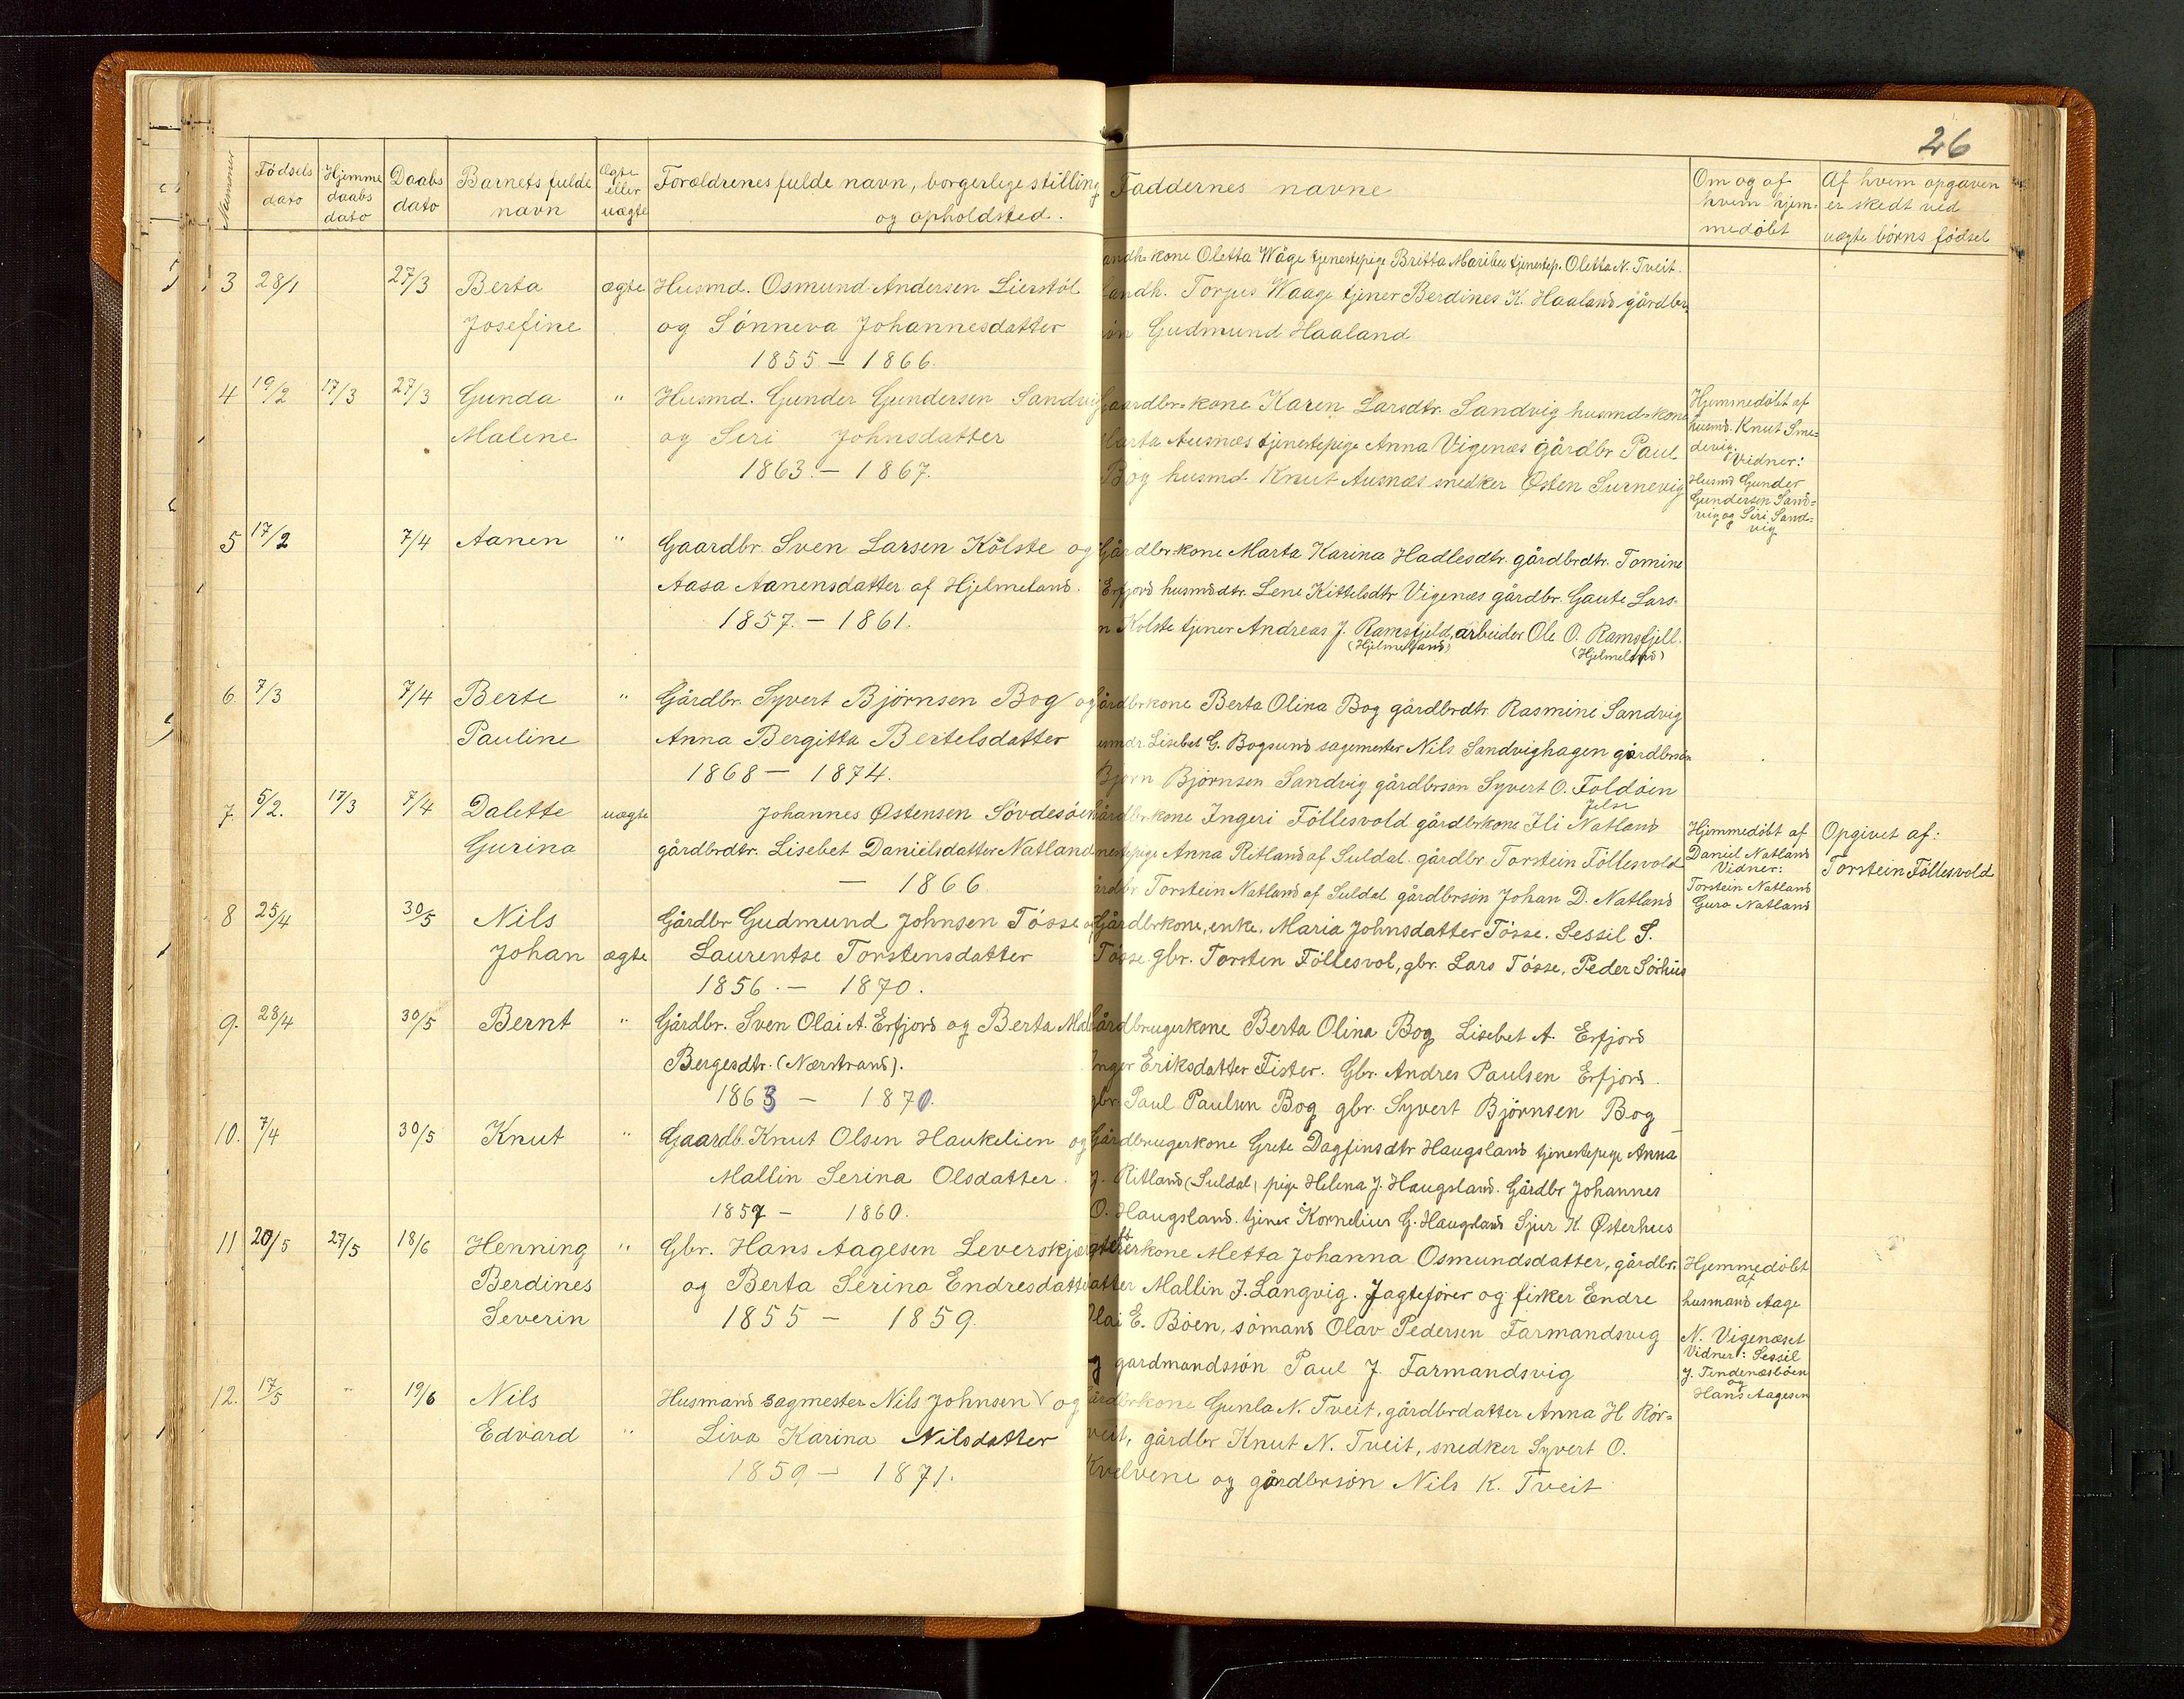 26
Nummer
Fødsels dato
Hjemme daabs dato
Daabs dato
Barnets fulde navn
Ægte eller uægte
Forældrenes fulde navn, borgerlige stilling og opholdsted.
Faddernes navne
Om og af hvem hjem- medøbt
Af hvem opgaven er skedt ved uægte børns fødsel
3 28/1 27/3 Berta ægte Husmd. Osmund Andersen Lierstøl
Josefine og Sønneva Johannesdatter
1855 - 1866
andh. kone Oletta Wåge tjenestepige Britta Mariber tjenestep. Oletta N. Tveit.
andh. Torjus Waage tjener Berdines K. Haaland gårdbr.
Gudmund Haaland
4 19/2 17/3 27/3 Gunda " Husmd. Gunder Gundersen Sandvig
Malene og Siri Johnsdatter
1863 - 1867.
Gaardbr-kone Karen Larsdtr. Sandvig husmd-kone
Marta Ausnæs tjenestepige Anna Vigenæs gårdbr Paul
Bog husmd. Knut Ausnæs snedker Østen Surnevig
Hjemmedøbt af
husmd. Knut Sme-
devig. Vidner:
Husmd Gunder
Gundersen Sand-
vig og Siri Sand-
vig
5 17/2 7/4 Aanen " Gaardbr. Sven Larsen Kølste og
Aasa Aanensdatter af Hjelmeland.
1857. - 1861.
Gårdbr-kone Marta Karina Hadlesdtr. gårdbrdtr. Tomine
Erfjord husmdsdtr. Lene Kittelsdtr Vigenæs gårdbr. Gaute Lars-
n Kolste tjener Andreas J. Ramsfjeld, arbeider Ole O. Ramsfjell.
(Hjelmeland) (Hjelmeland)
6. 7/3 7/4 Berte " Gårdbr. Syvert Bjørnsen Bog og
Pauline Anna Bergitta Bertelsdatter
1868 - 1874.
Gårdbrkone Berta Olina Bog gårdbrdtr. Rasmine Sandvig
Lisebet G. Bogsund sagemester Nils Sandvighagen gårdbrsøn
Bjørn Bjørnsen Sandvig gårdbrsøn Syvert O. Foldøin
Jelse
7. 5/2. 17/3 7/4 Dalette uægte Johannes Østensen Søvdesøen
Gurina gårdbrdtr. Lisebet Danielsdatter Natland
- 1866
Gårdbrkone Ingeri Føllesvold gårdbrkone Ili Natland
nestepige Anna Ritland af Suldal. gårdbr Torstein Føllesvold
gårdbr Torstein Natland af Suldal gårdbrsøn Johan D. Natland
Hjemmedøbt af
Daniel Natland
Vidner:
Torstein Natland
Guro Natland
Opgivet af:
Torstein Føllesvold
8 25/4 30/5 Nils Gårdbr Gudmund Johnsen Tøsse og
Johan ægte Laurentse Torstensdatter
1856. - 1870.
Gårdbrkone, enke, Maria Johnsdatter Tøsse. Sessil S.
Tøsse. gbr. Torsten Føllesvol, gbr. Lars Tøsse, Peder Sørhus
9. 28/4 30/5 Bernt " Gårdbr. Sven Olai A. Erfjord og Berta Mal
Bergesdtr. (Nærstrand).
1863 - 1870.
Gårdbrugerkone Berta Olina Bog Lisebet A. Erfjord
Inger Eriksdatter Fister. Gbr. Andres Paulsen Erfjord.
gbr. Paul Paulsen Bog gbr. Syvert Bjørnsen Bog
10. 7/4 30/5 Knut " Gaardb. Knut Olsen Haukelien og
Mallin Serina Olsdatter.
1857 - 1860.
Gårdbrugerkone Grete Dagfinsdtr Haugsland tjenestepige Anna
J. Ritland (Suldal) pige Helena J. Haugsland. Gårdbr Johannes
O. Haugsland. tjener Kornelius G. Haugsland Sjur K. Østerhus
11 20/5 27/5 18/6 Henning " Gbr. Hans Aagesen Leverskjæ
Berdines og Berta Serina Endresdatte
Severin 1855 - 1859.
erkone Metta Johanna Osmundsdatter, gårdbr.
atter Mallin J. Langvig. Jagtefører og fisker Endre
Olai E. Bøen, sømand Olav Pedersen Farmandsvig
g gardmandssøn Paul J Farmandsvig
Hjemmedøbt
af
husmand Aage
N. Vigenæset
Vidner: Sessil
J. Tendenæsbøen
og
Hans Aagesen
12. 17/5 " 19/6 Nils Husmand sagmester Nils Johnsen og
Edvard " Liva Karina Nilsdatter
1859 - 1871.
Gårdbrkone Gunla N. Tveit, gårdbrdatter Anna H Rør-
veit, gårdbr Knut N. Tveit, snedker Syvert O.
Kvelvene og gårdbrsøn Nils K. Tveit